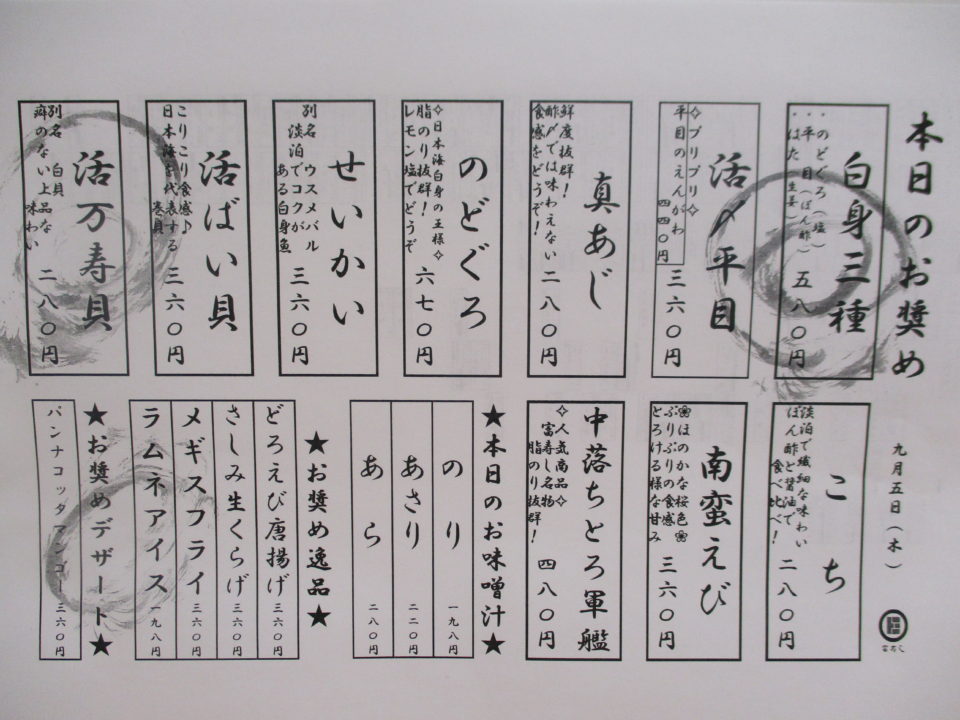 本日のお奨め
白身三種
・のどぐろ(塩)
・平目(ぽん酢)
・はた(生姜)
五八〇円
活〆平目
✧プリプリ✧
平目のえんがわ
四四〇円
三六〇円
真あじ
鮮度抜群!
酢〆では味わえない
食感をどうぞ!
二八〇円
のどぐろ
✧日本海白身の王様✧
脂のり抜群!
レモン塩でどうぞ
六七〇円
せいかい
別名 ウスメバル
淡泊でコクが
ある白身魚
三六〇円
活ばい貝
こりこり食感♪
日本海を代表する
巻貝
三六〇円
活万寿貝
別名 白貝
癖のない上品な
味わい
二八〇円
九月五日(木)
こち
淡泊で繊細な味わい
ぽん酢と醤油で
食べ比べ!
二八〇円
南蛮えび
❀ほのかな桜色❀
ぷりぷりの食感
とろける様な甘み
三六〇円
中落ちとろ軍艦
✧人気商品✧
富寿し名物
脂のり抜群!
四八〇円
★本日のお味噌汁★
のり 一九八円
あさり 二二〇円
あら 二八〇円
★お奨め逸品★
どろえび唐揚げ 三六〇円
さしみ生くらげ 三六〇円
メギスフライ 三六〇円
ラムネアイス 一九八円
★お奨めデザート★
パンナコッタマンゴー 三六〇円